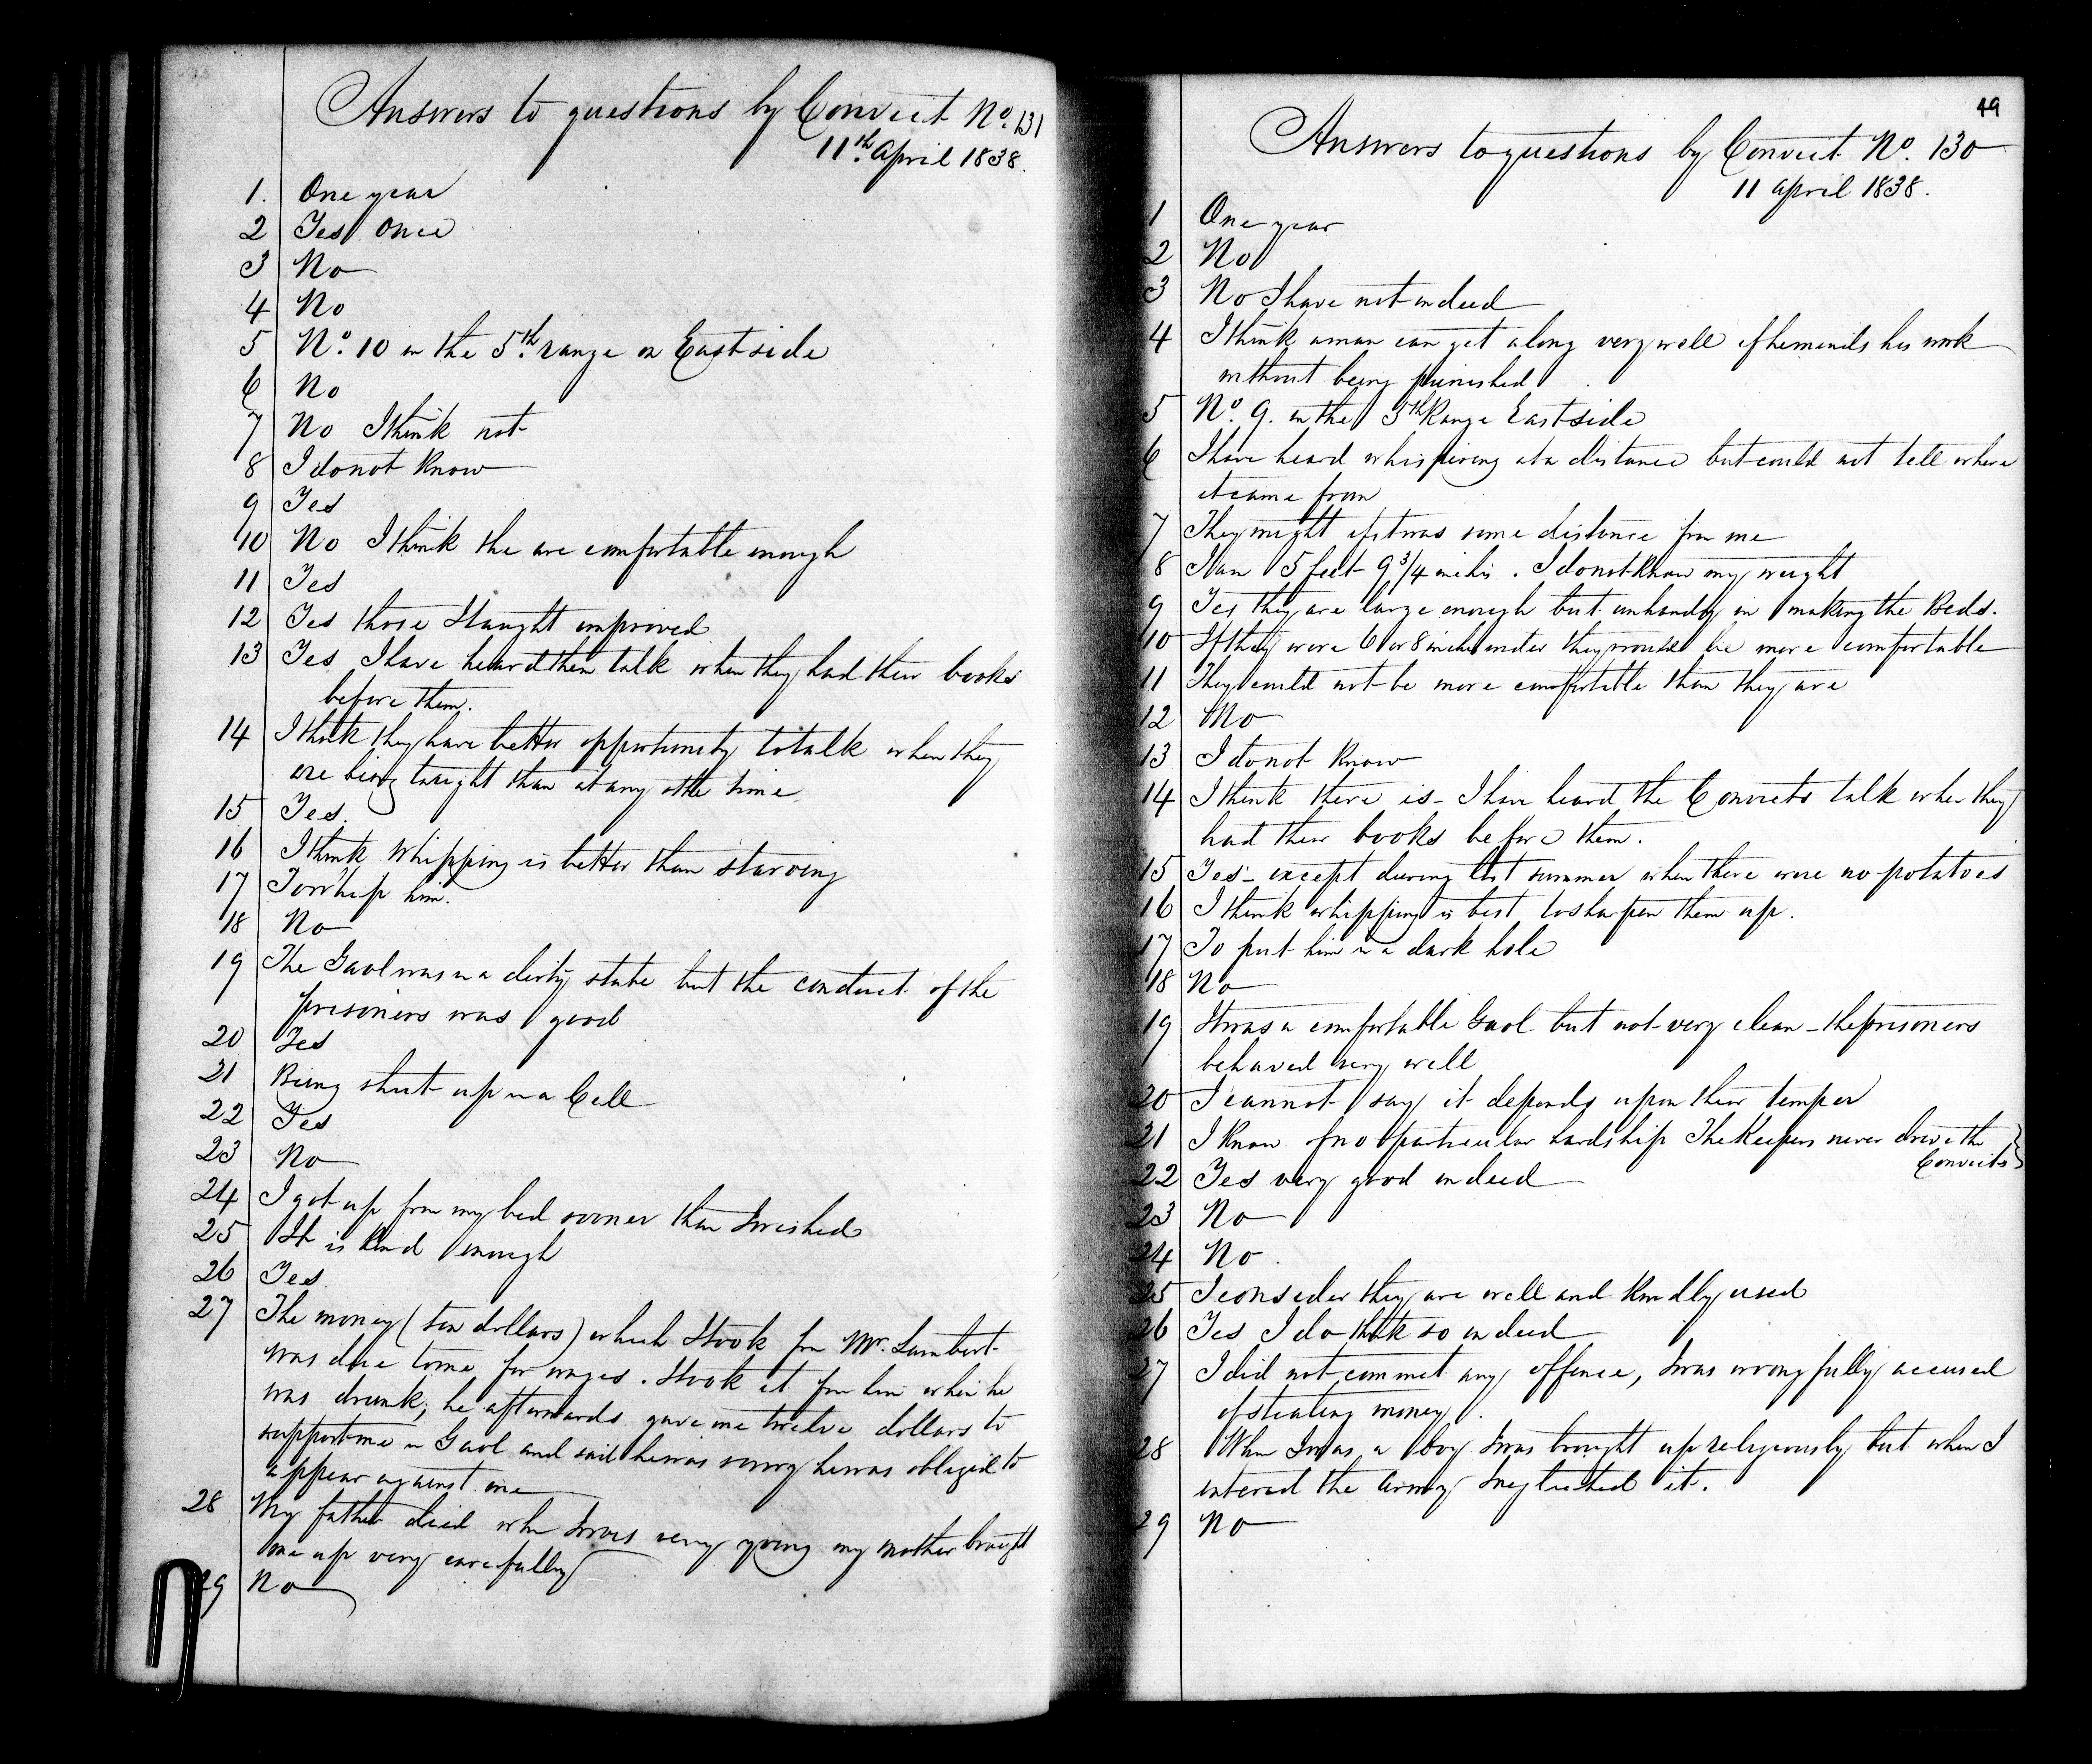 Answers to questions by Convict No. 131
11th. April 1838.
1. One year
2 Yes Once
3 No
4 No
5 No. 10 in the 5th. range on East side
6 No
7 No I think not
8 I do not know
9 Yes
10 No I think the are comfortable enough
11 Yes
12 Yes those I taught improved
13 Yes I have heard them talk when they had their books
before them.
14 I think they have better opportunity to talk when they
are being taught than at any other time
15 Yes.
16 I think Whipping is better than starving
17 To whip him.
18 No
19 The Gaol was in a dirty state but the conduct of the
prisoners was good
20 Yes
21 Being shut up in a Cell
22 Yes
23 No
24 I got up from my bed sooner than I wished
25 It is kind enough
26 Yes
27 The money (ten dollars) which I took from Mr. Lambert
was due to me for wages. I took it from him when he
was drunk; he afterwards gave me twelve dollars to
support me in Gaol and said he was sorry he was obliged to
appear against me
28 My father died when I was very young my mother brought
me up very carefully
29 No
49
Answers to questions by Convict No. 130
11 April 1838.
1 One year
2 No
3 No I have not indeed
4 I think a man can get along very well if he minds his work
without being punished
5 No. 9. in the 5th Range East side
6 I have heard whispering at a distance but could not tell where
it came from
7 They might if it was some distance from me
8 I am 5 feet 9 3/4 inches. I do not know my weight
9 Yes they are large enough but unhandy in making the Beds.
10 If they were 6 or 8 inches wider they would be more comfortable
11 They could not be more comfortable than they are
12 No
13 I do not know
14 I think there is - I have heard the Convicts talk when they
had their books before them.
15 Yes - except during last summer when there were no potatoes
16 I think whipping is best to sharpen them up.
17 To put him in a dark hole
18 No
19 It was a comfortable Gaol but not very clean - the prisoners
behaved very well
20 I cannot say it depends upon their temper
21 I know of no particular hardship The Keepers never drive the
Convicts
22 Yes very good indeed
23 No
24 No.
25 I consider they are well and kindly used
26 Yes I do think so indeed
27 I did not commit any offence, I was wrongfully accused
of stealing money.
28 When I was a boy I was brought up religiously but when I
entered the Army I neglected it.
29 No